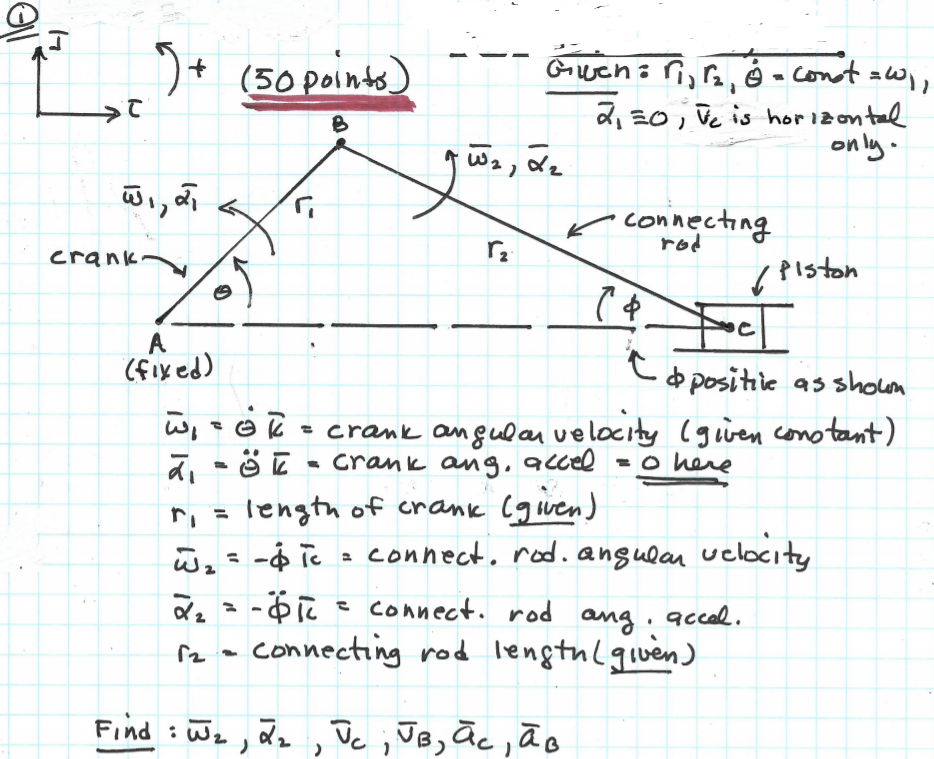 ①
J̄
+
(50 points)
Given: r₁, r₂, θ̇ = const = ω₁,
ᾱ₁ ≡ 0, v̄c is horizontal
only.
ī
B
ω̄₂, ᾱ₂
ω̄₁, ᾱ₁
r₁
connecting
rod
r₂
crank
piston
θ
φ
C
A
(fixed)
φ positive as shown
ω̄₁ = θ̇ k̄ = crank angular velocity (given constant)
ᾱ₁ = θ̈ k̄ = crank ang. accel = 0 here
r₁ = length of crank (given)
ω̄₂ = -φ̇ k̄ = connect. rod. angular velocity
ᾱ₂ = -φ̈ k̄ = connect. rod ang. accel.
r₂ = connecting rod length (given)
Find: ω̄₂, ᾱ₂, v̄c, v̄B, āc, āB